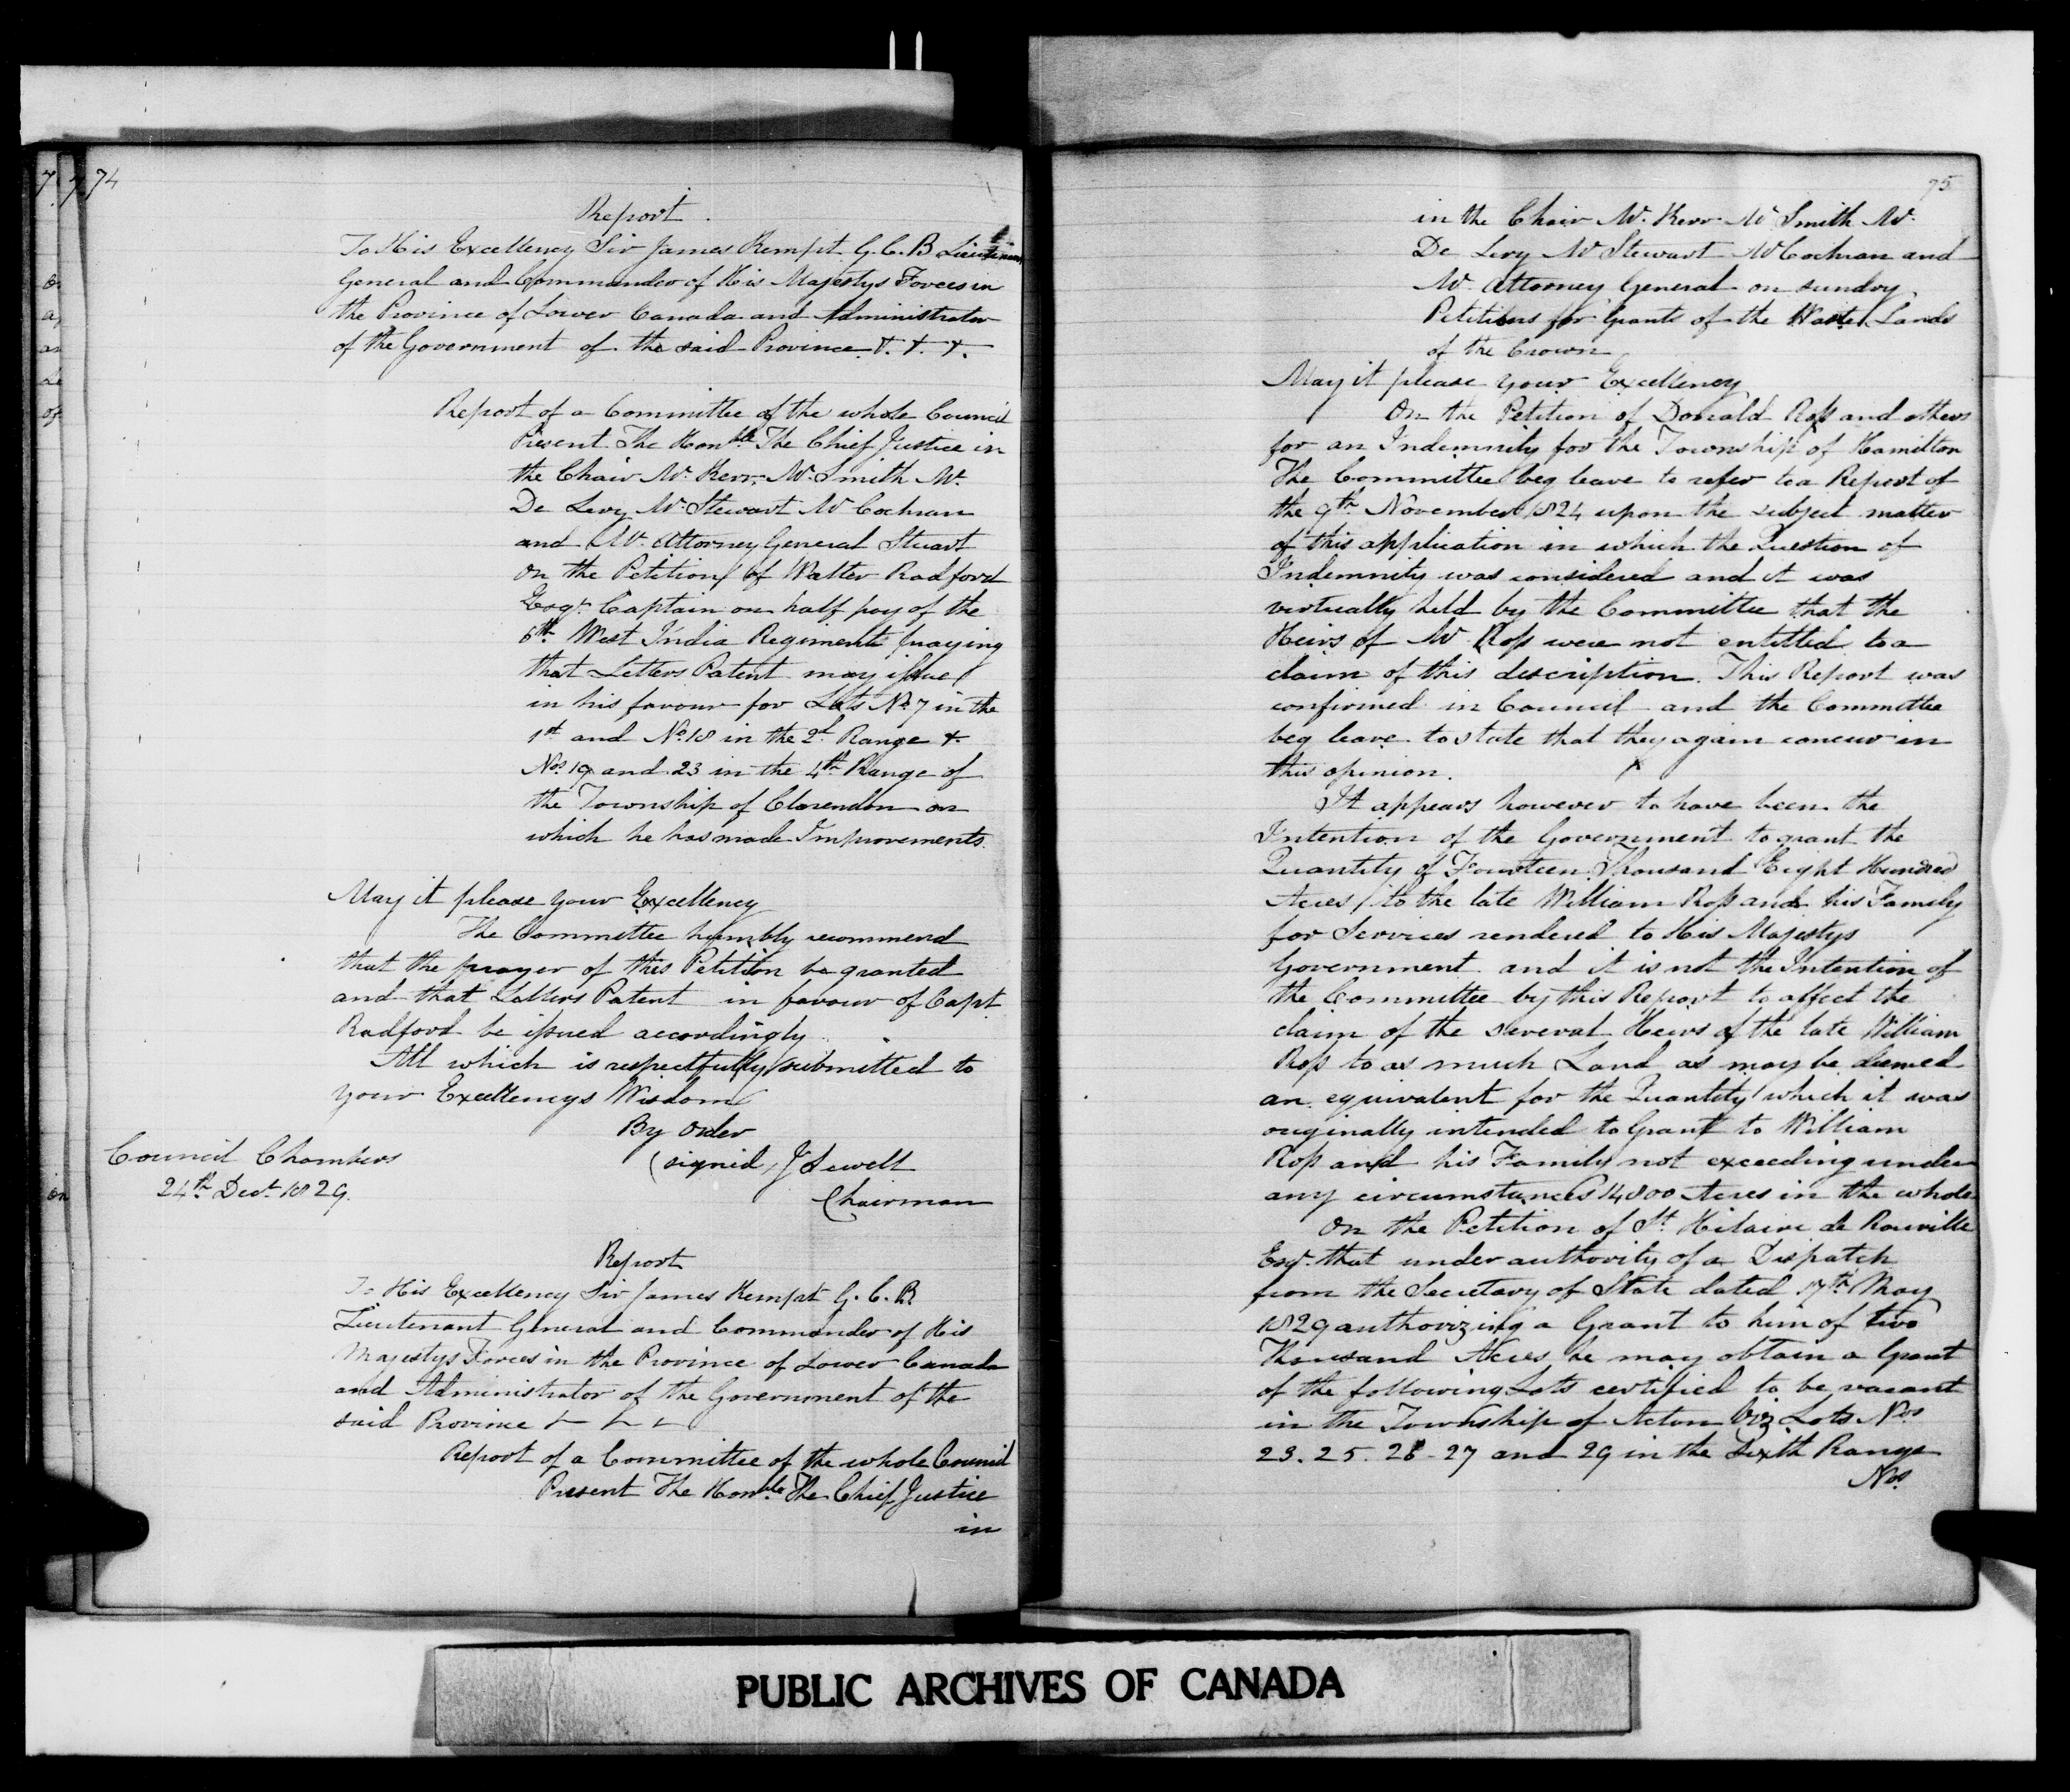 74
Report.
To His Excellency Sir James Kempt G.C.B Lieutenant
General and Commander of His Majestys Forces in
the Province of Lower Canada and Administrator
of the Government of the said Province &. &. &.
Report of a Committee of the whole Council
Present The Honble The Chief Justice in
the Chair Mr. Kerr, Mr. Smith Mr.
De Lery Mr. Stewart Mr Cochran
and Mr. Attorney General Stuart
on the Petition of Walter Radford
Esqr. Captain on half pay of the
6th West India Regiment praying
that Letters Patent may issue
in his favour for Lots No 7 in the
1st and No. 18 in the 2d. Range &
Nos. 19 and 23 in the 4th Range of
the Township of Clarendon on
which he has made Improvements.
May it please your Excellency
The Committee humbly recommend
that the prayer of this Petition be granted
and that Letters Patent in favour of Capt
Radford be issued accordingly
All which is respectfully submitted to
your Excellencys Wisdom
By Order
(signed) J Sewell
Chairman
Council Chambers
24th Decr. 1829.
Report
To His Excellency Sir James Kempt G.C.B.
Lieutenant General and Commander of His
Majestys Forces in the Province of Lower Canada
and Administrator of the Government of the
said Province & & &
Report of a Committee of the whole Council
Present The Honble. The Chief Justice
in
75
in the Chair Mr. Kerr Mr Smith Mr.
De Lery Mr Stewart Mr Cochran and
Mr. Attorney General on sundry
Petitions for Grants of the Waste Lands
of the Crown
May it please your Excellency
On the Petition of Donald Ross and others
for an Indemnity for the Township of Hamilton
The Committee beg leave to refer to a Report of
the 9th November 1824 upon the subject matter
of this application in which the Question of
Indemnity was considered and it was
virtually held by the Committee that the
Heirs of Mr Ross were not entitled to a
claim of this description. This Report was
confirmed in Council and the Committee
beg leave to state that they again concur in
this opinion.
It appears however to have been the
Intention of the Government to grant the
Quantity of Fourteen Thousand Eight Hundred
Acres to the late William Ross and his Family
for Services rendered to His Majestys
Government and it is not the Intention of
the Committee by this Report to affect the
claim of the several Heirs of the late William
Ross to as much Land as may be deemed
an equivalent for the Quantity which it was
originally intended to Grant to William
Ross and his Family not exceeding under
any circumstances 14800 Acres in the whole
On the Petition of St Hilaire de Rouville
Esqr. that under authority of a Dispatch
from the Secretary of State dated 17th May
1829 authorizing a Grant to him of two
Thousand Acres he may obtain a Grant
of the following Lots certified to be vacant
in the Township of Acton Viz Lots Nos
23. 25. 26 - 27 and 29 in the Sixth Range
Nos.
PUBLIC ARCHIVES OF CANADA